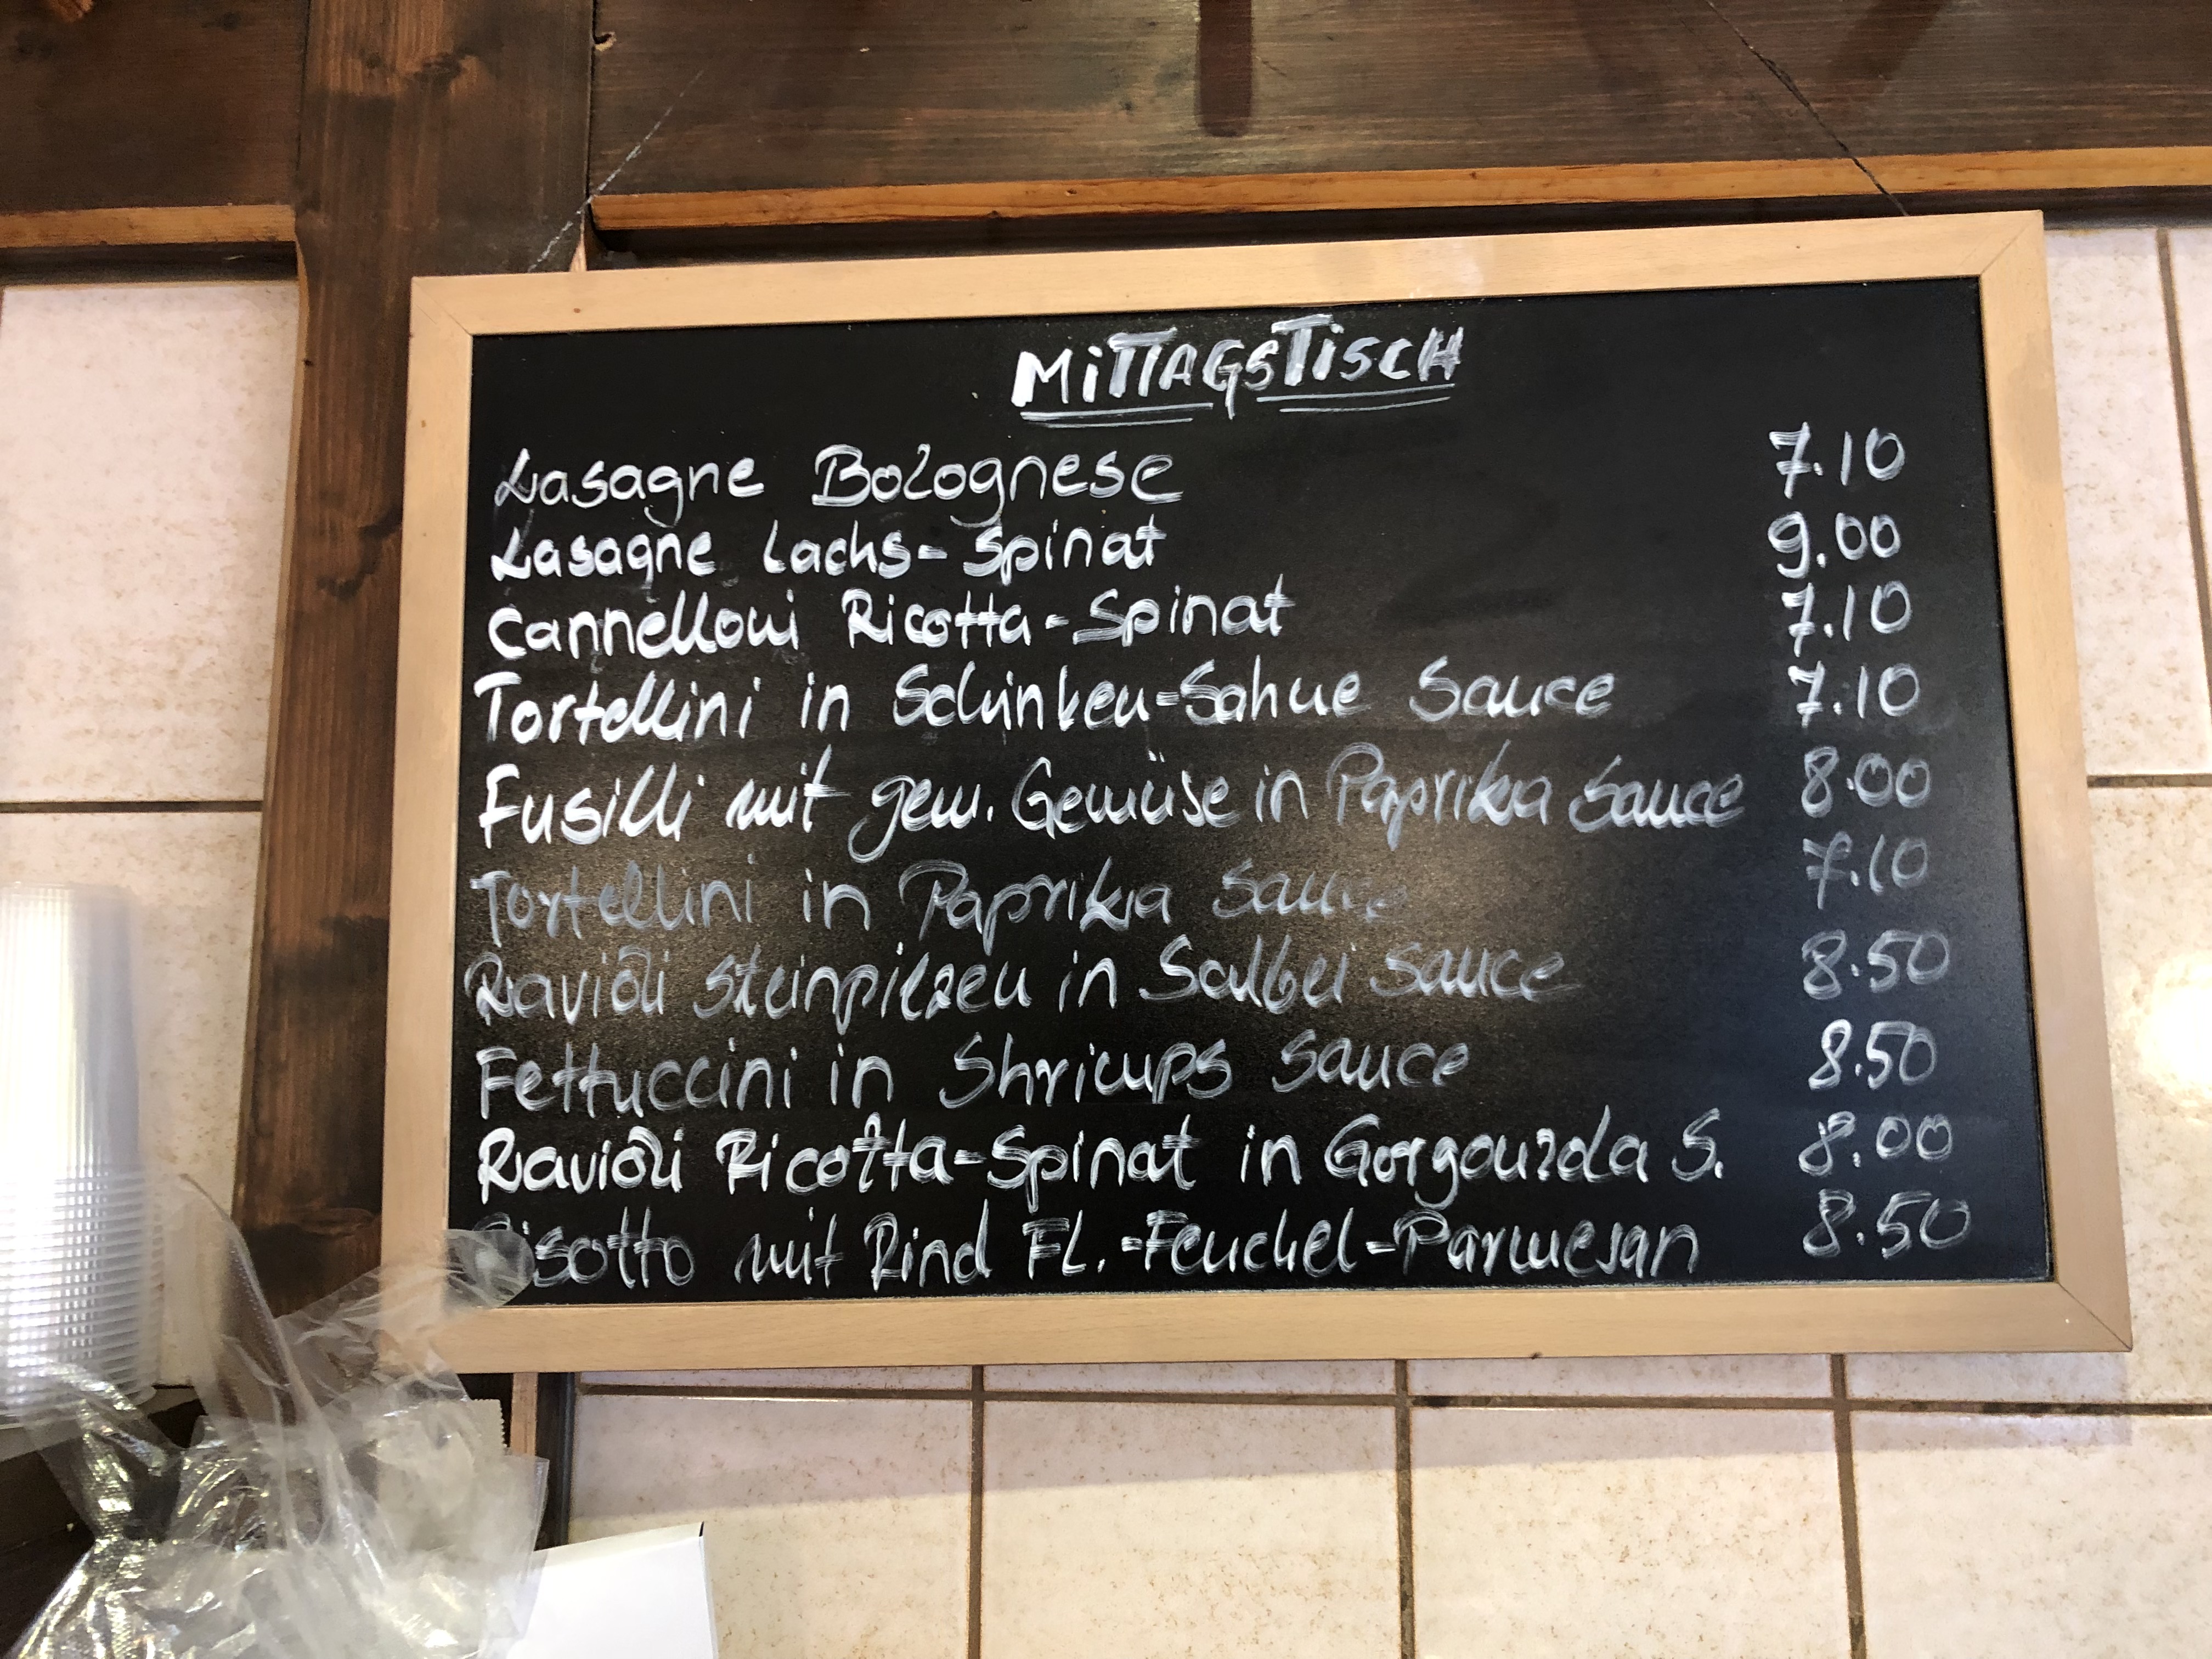 MiTTAGSTiSCH
Lasagne Bolognese 7.10
Lasagne Lachs-Spinat 9.00
Cannelloni Ricotta-Spinat 7.10
Tortellini in Schinken-Sahne Sauce 7.10
Fusilli mit gem. Gemüse in Paprika Sauce 8.00
Tortellini in Paprika Sauce 7.10
Ravioli Steinpilzen in Salbei Sauce 8.50
Fettuccini in Shrimps Sauce 8.50
Ravioli Ricotta-Spinat in Gorgonzola S. 8.00
Risotto mit Rind FL.-Fenchel-Parmesan 8.50